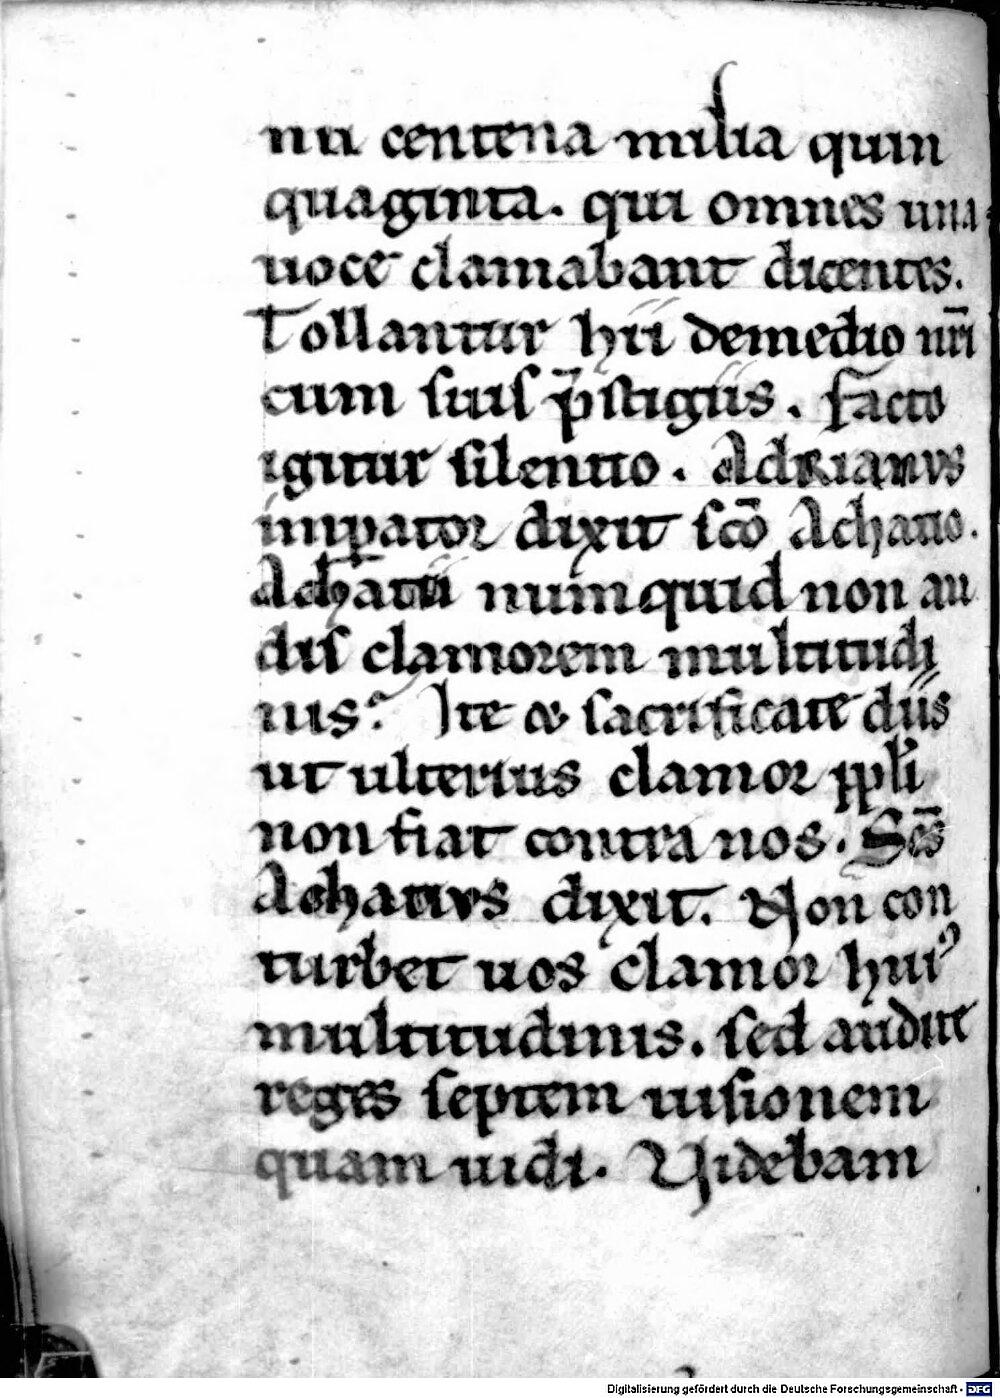 nti centena milia quin
quaginta. qui omnes una
uoce clamabant dicentes.
Tollantur hii demedio nr̄i
cum suis p̄stigiis. Facto
igitur silentio. Adrianus
imꝑator dixit sc̄o Achatio.
Achatii numquid non au
dis clamorem multitudi
nis? Ite & sacrificate diis
ut ulterius clamor ppl̄i
non fiat contra nos. Sc̄s
Achatius dixit. Non con
turbet uos clamor huiꝰ
multitudinis. sed audite
reges septem uisionem
quam uidi. Videbam
Digitalisierung gefördert durch die Deutsche Forschungsgemeinschaft - DFG